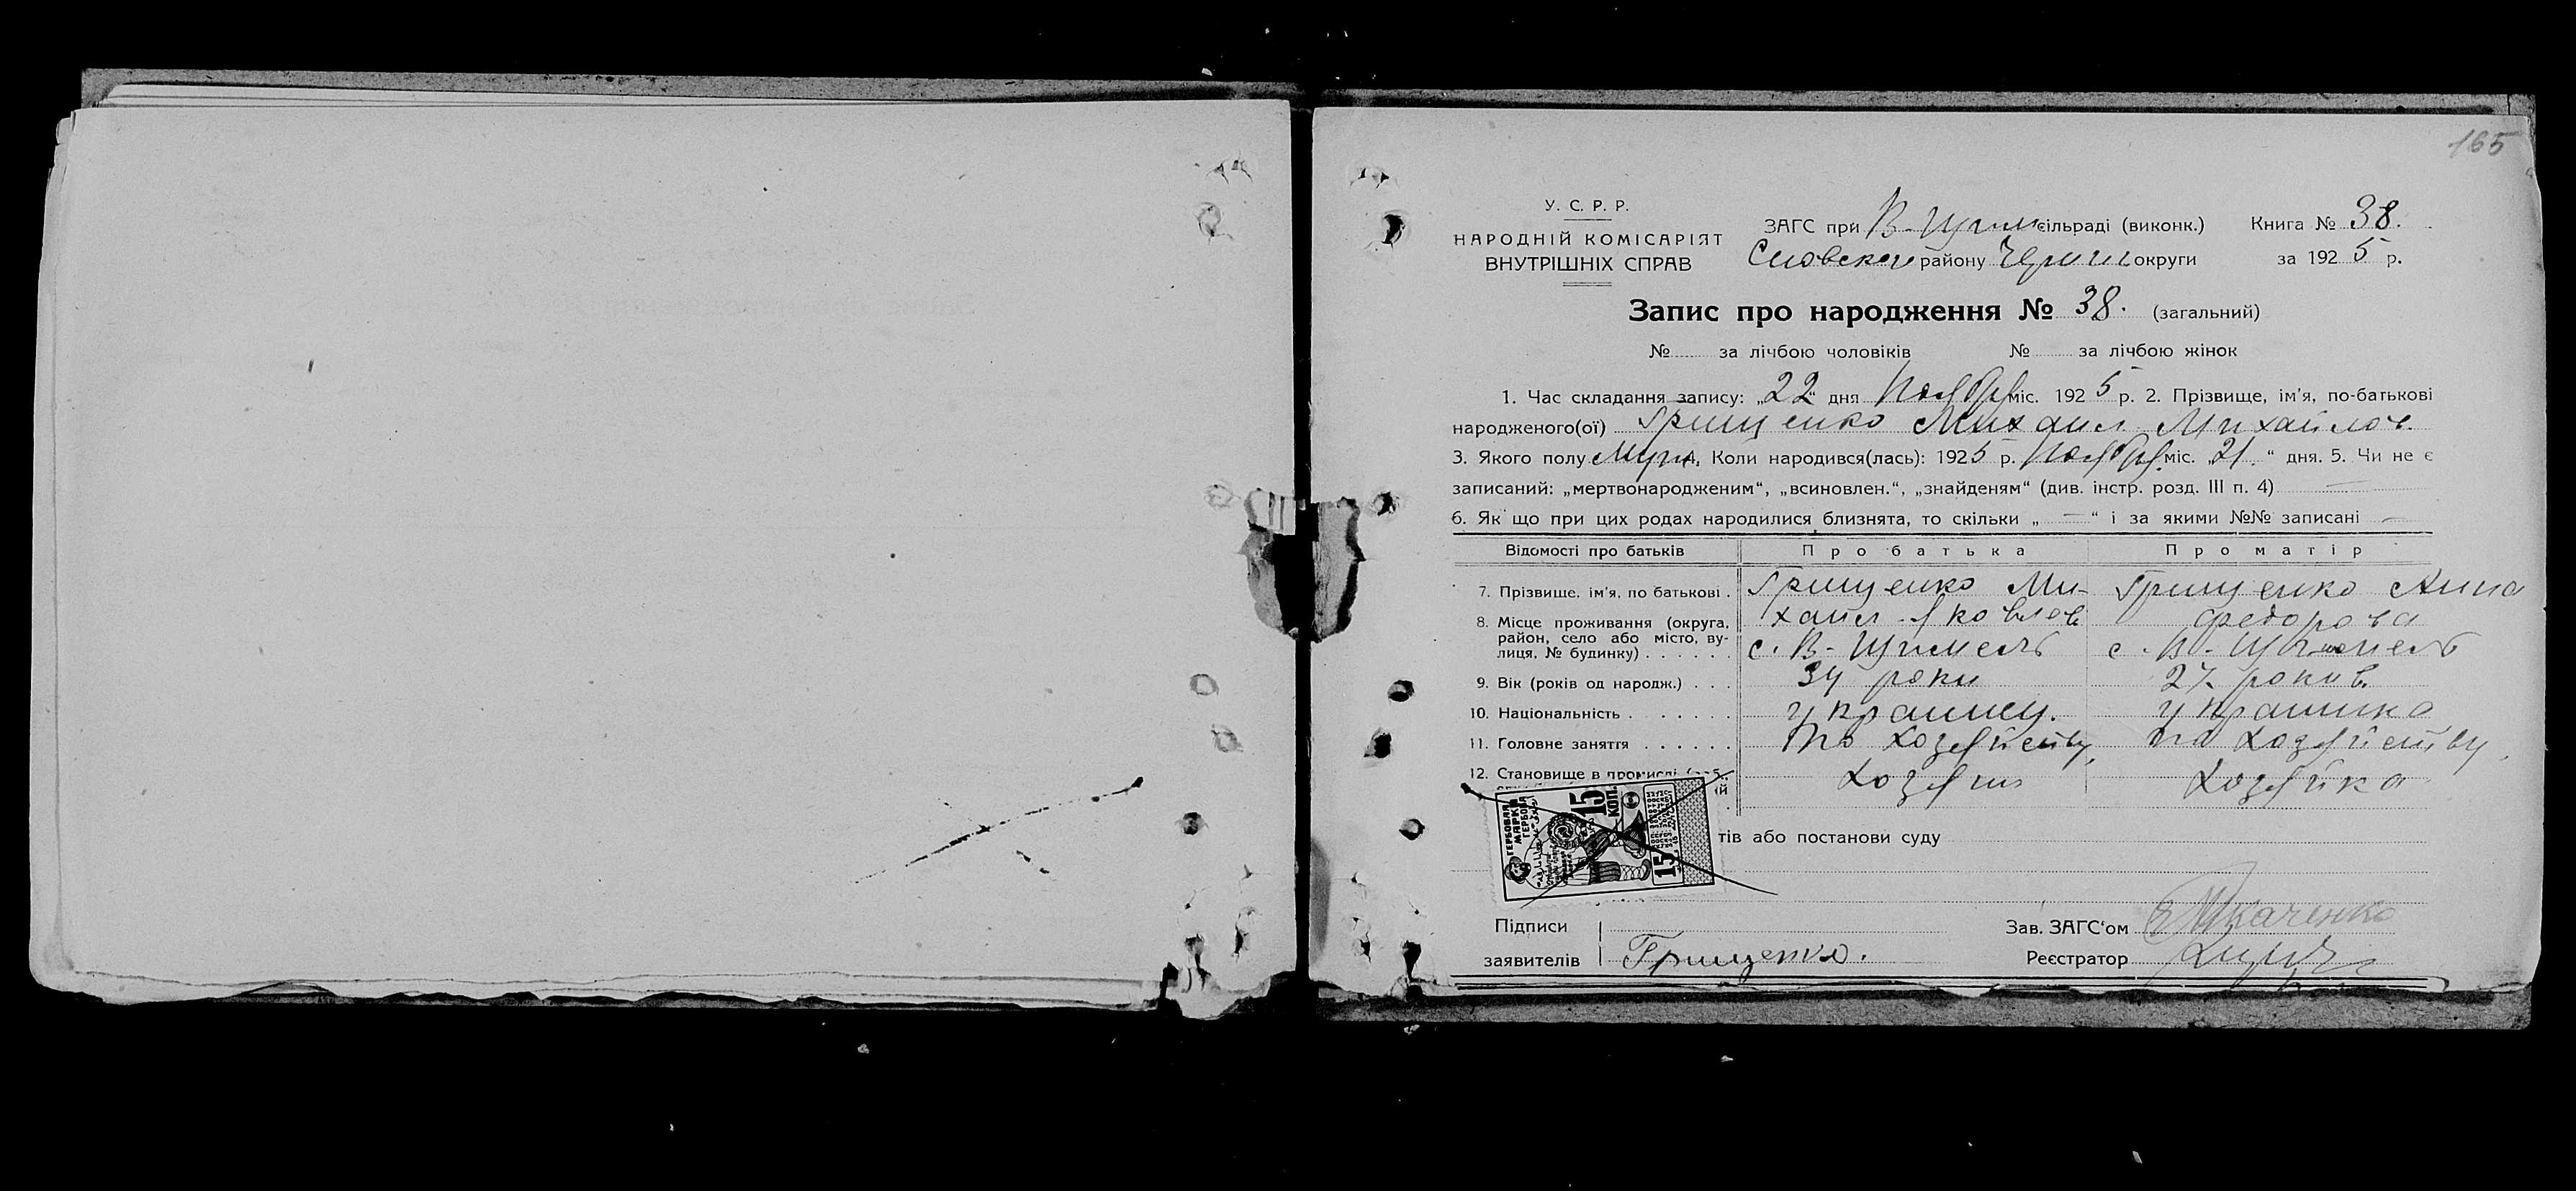 165
У. С. Р. Р.
НАРОДНІЙ КОМІСАРІЯТ
ВНУТРІШНІХ СПРАВ
ЗАГС при В-Щимел сільраді (виконк.) Книга № 38.
Сновского району Черниг округи за 1925 р.
Запис про народження № 38. (загальний)
№ за лічбою чоловіків № за лічбою жінок
1. Час складання запису: „22“ дня Ноября міс. 1925 р. 2. Прізвище, ім'я, по-батькові
народженого(ої) Грищенко Михаил Михайлов.
3. Якого полу Муж. 4. Коли народився(лась): 1925 р. Ноября міс. „21.“ дня. 5. Чи не є
записаний: „мертвонародженим“, „всиновлен.“, „знайденям“ (див. інстр. розд. III п. 4) —
6. Як що при цих родах народилися близнята, то скільки „ — “ і за якими №№ записані —
Відомості про батьків Про батька Про матір
7. Прізвище, ім'я, по батькові . Грищенко Ми- Грищенко Анна
хаил Яковлев Федорова
8. Місце проживання (округа,
район, село або місто, ву-
лиця, № будинку) . . . . . . с. В-Щимель с. В-Щимель
9. Вік (років од народж.) . . . 34 роки 27 рокив.
10. Національність . . . . . . . украинец. украинка
11. Головне заняття . . . . . . По хозяйству по хозяйству
12. Становище в промислі Хозяин Хозяйка
ГЕРБОВАЯ МАРКА
ГЕРБОВА
15 КОП.
15
тів або постанови суду
Підписи
заявителів Грищенко.
Зав. ЗАГС'ом Ткаченко
Реєстратор